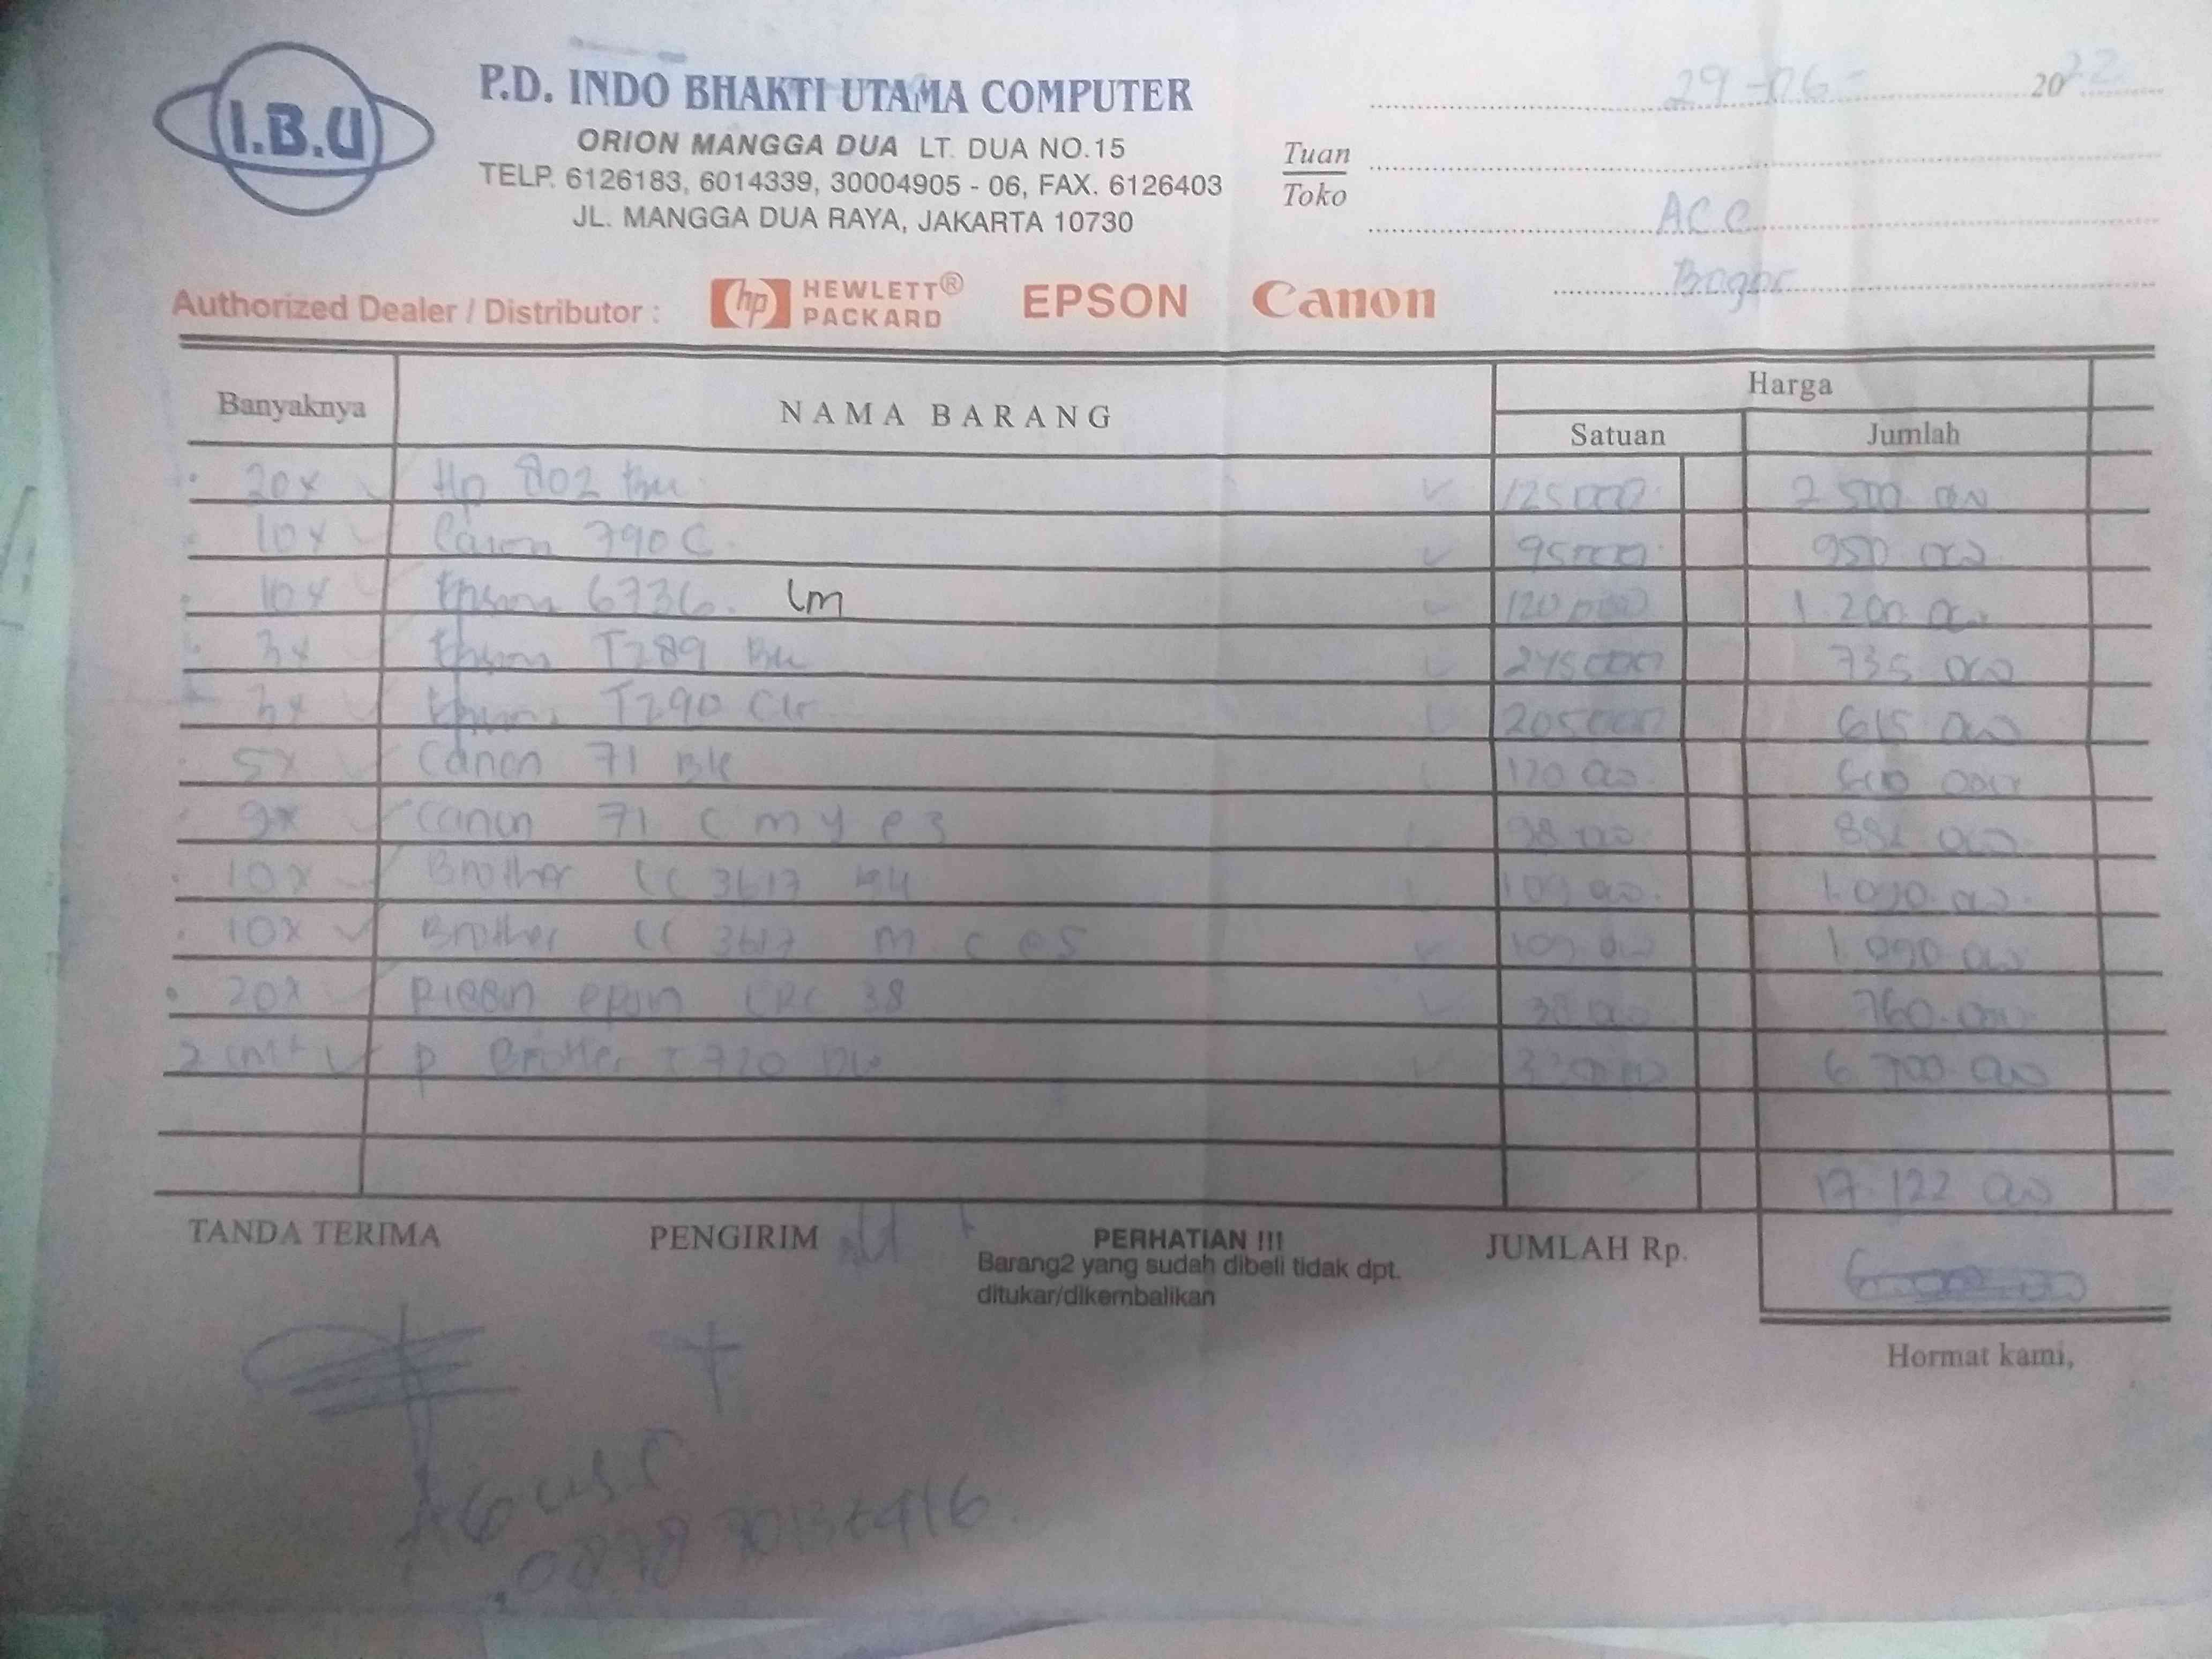 I.B.U
P.D. INDO BHAKTI UTAMA COMPUTER
ORION MANGGA DUA LT. DUA NO.15
TELP. 6126183, 6014339, 30004905 - 06, FAX. 6126403
JL. MANGGA DUA RAYA, JAKARTA 10730
29-06- 2022
Tuan
Toko
ACC
Bogor
Authorized Dealer / Distributor : hp HEWLETT® PACKARD EPSON Canon
Banyaknya NAMA BARANG Harga
Satuan Jumlah
20x Hp 802 125000 2 500 000
10x Canon 790 C 95000 950 000
10x Epson 6736 Lm 120 000 1.200.000
3x Epson T289 245000 735 000
3x Epson T290 Clr 205000 615 000
5x Canon 71 Bk 120 000 600 000
9x Canon 71 C m y e3 98 000 882 000
10x Brother LC 3617 109 000 1.090.000
10x Brother LC 3617 m c e5 109 000 1 090.000
20x epson ERC 38 38 000 760.000
2 P Brother T 720 6 700.000
17.122 000
TANDA TERIMA PENGIRIM PERHATIAN !!! JUMLAH Rp.
Barang2 yang sudah dibeli tidak dpt.
ditukar/dikembalikan
Hormat kami,